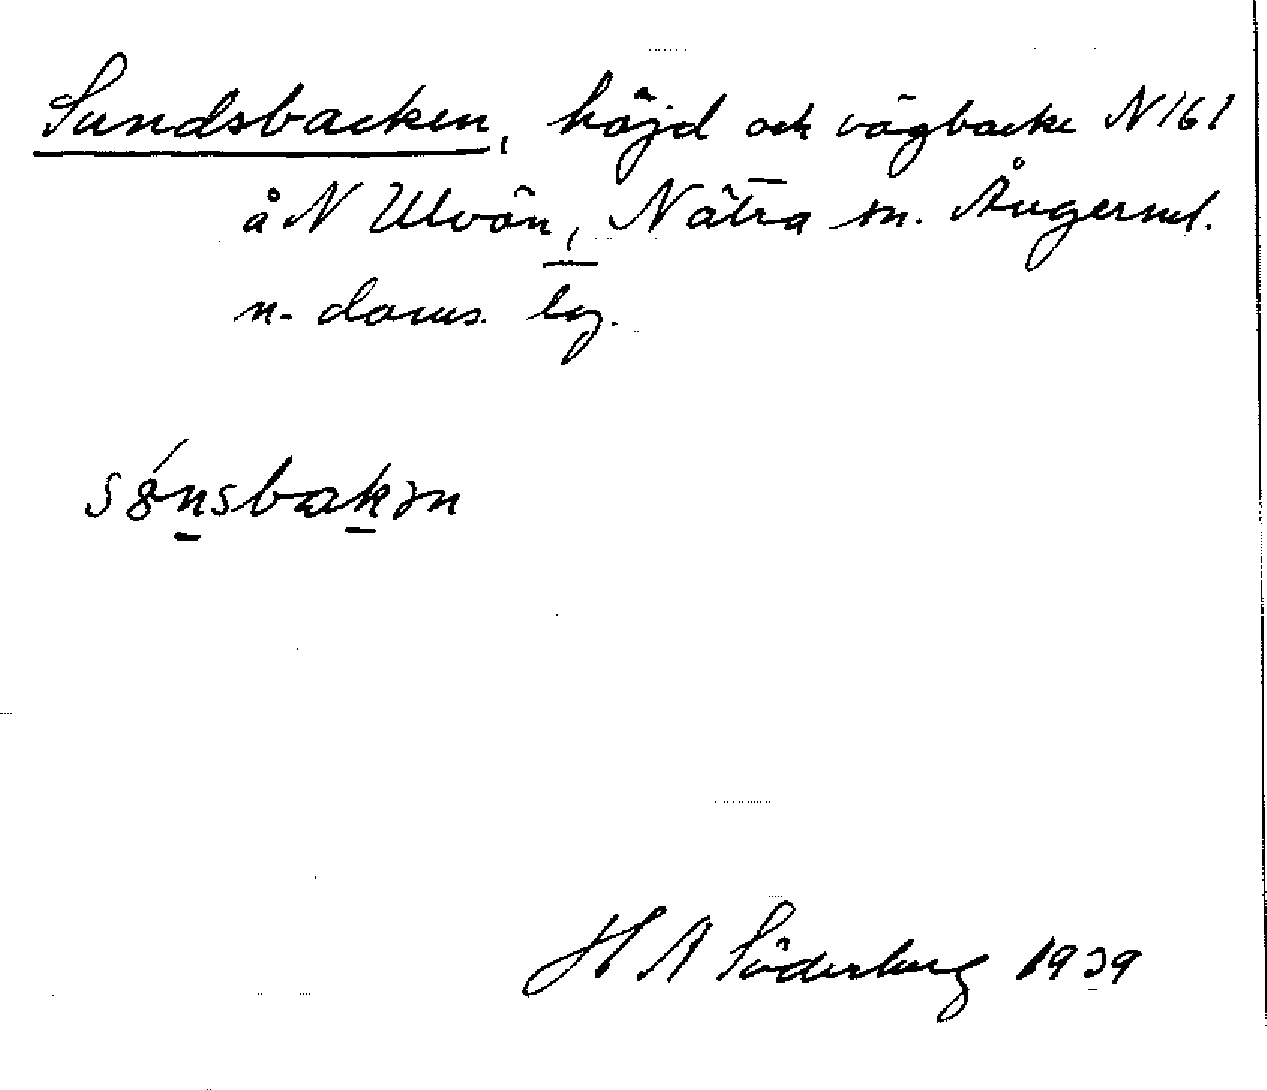 Sundsbacken, höjd och vägbacke N 161
å N Ulvön, Nätra sn. Ångerml.
n. dams. lgj.
sɵ́nsbakən
H A Söderberg 1939